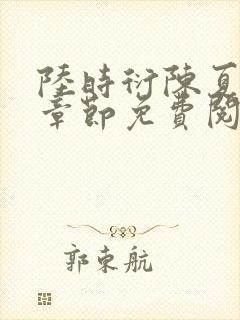 陸時衍陳夏
章節免費閱
郭東航